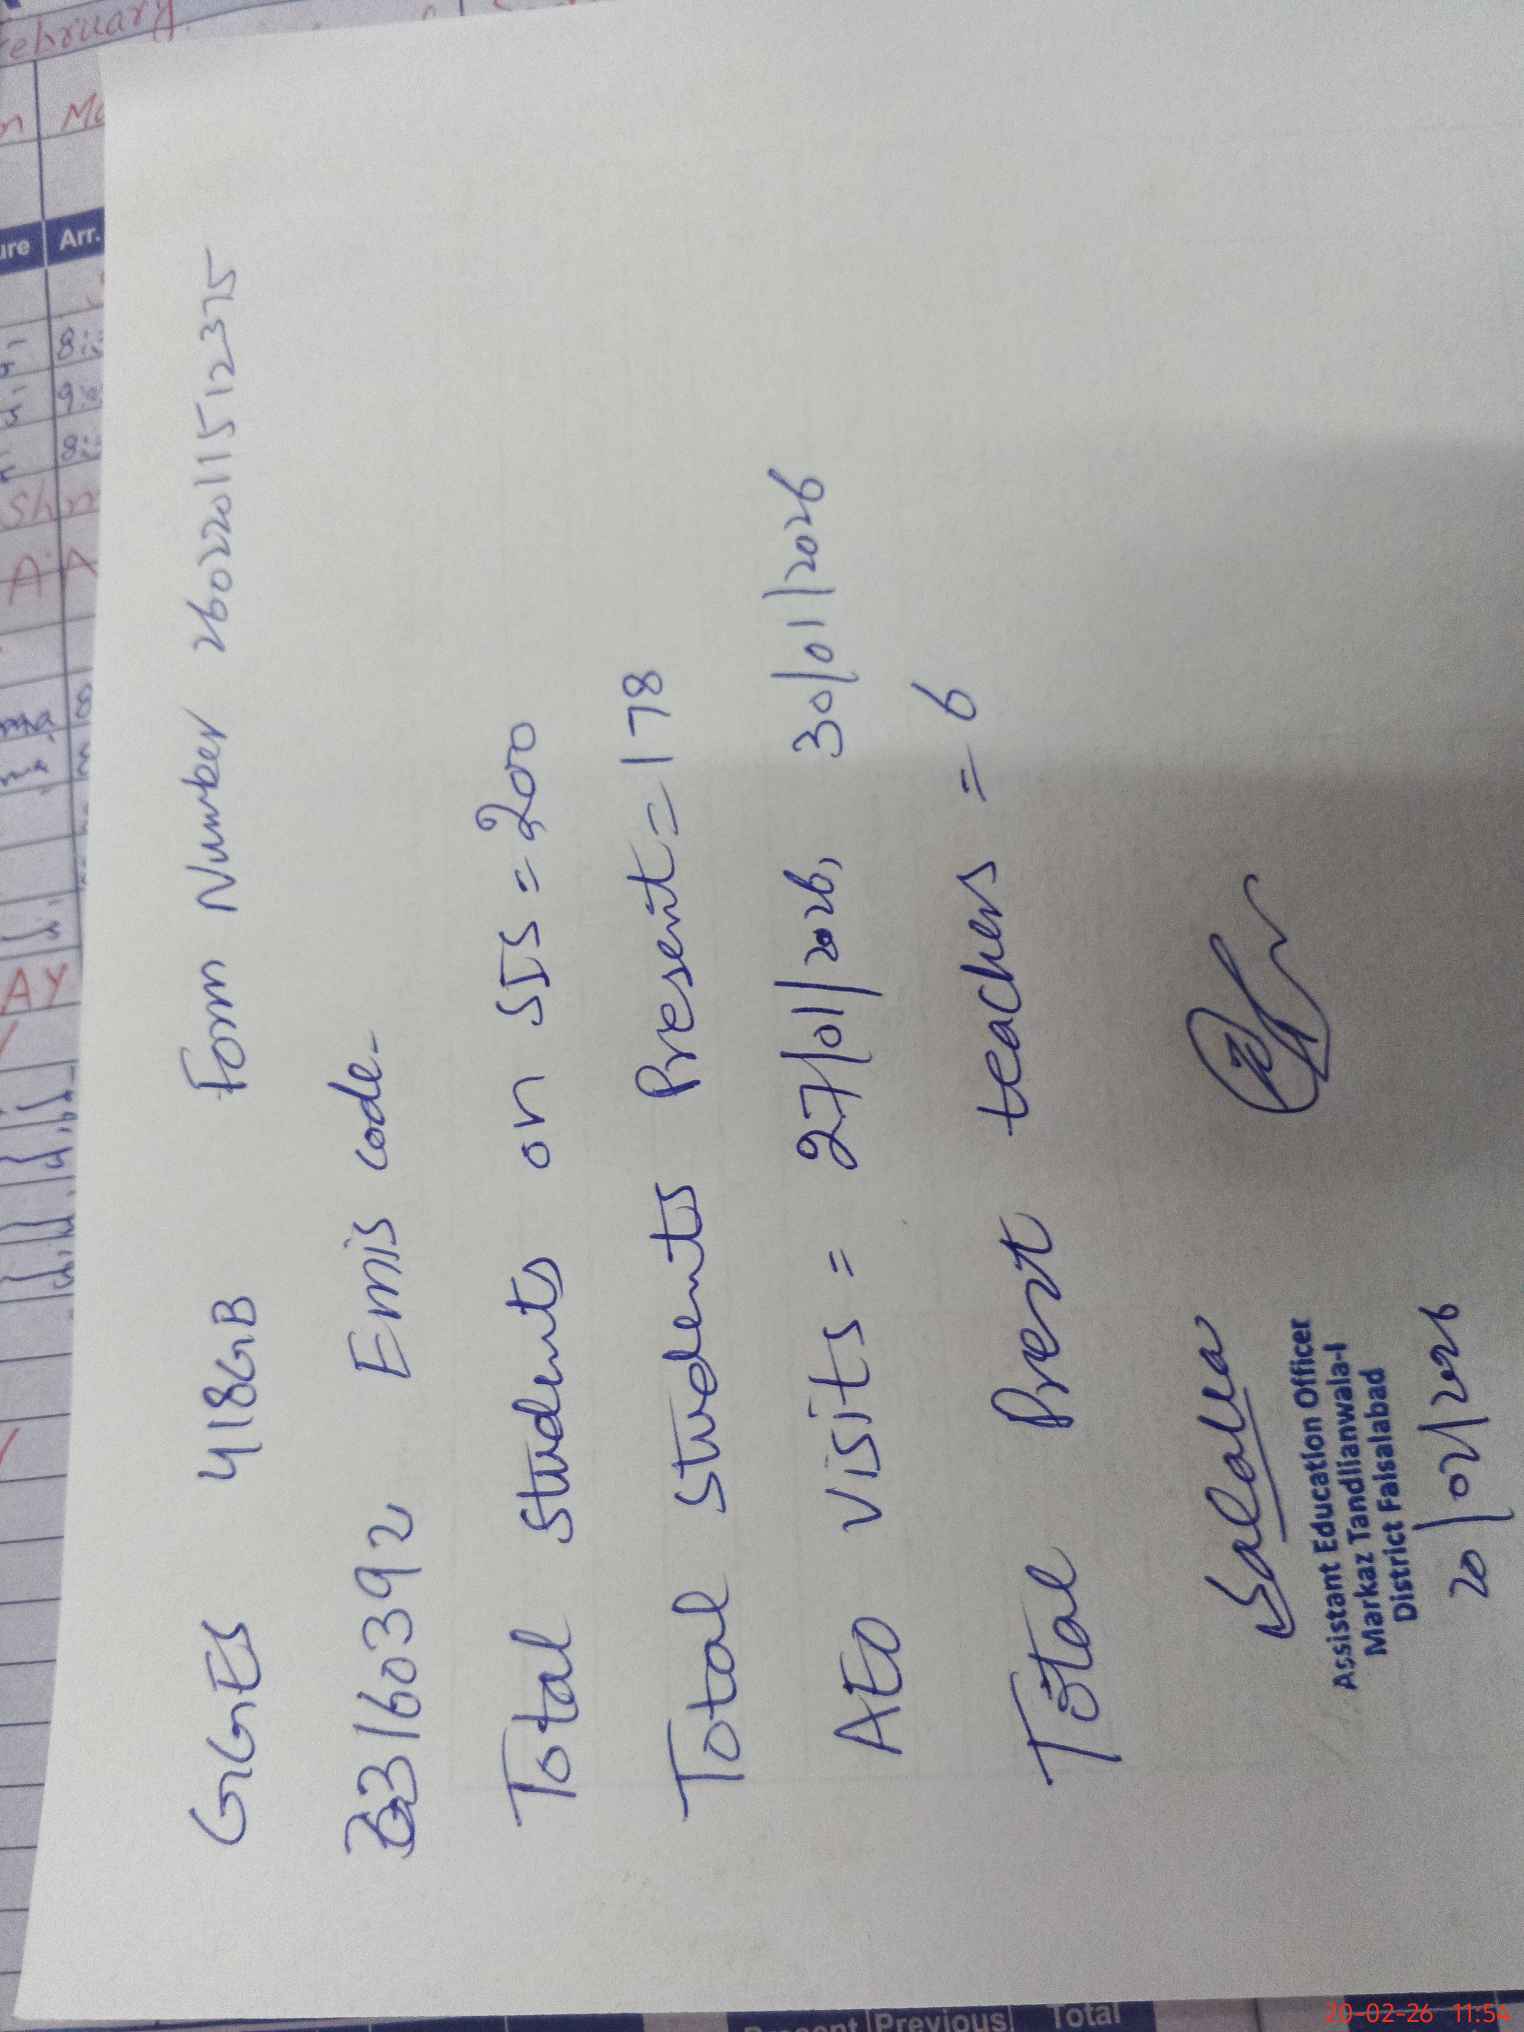 GGES 418GB Form Number 26022011512375
33160392 Emis code-
Total students on SIS = 200
Total students Present = 178
AEO visits = 27/01/2026, 30/01/2026
Total Presnt teachers = 6
Assistant Education Officer
Markaz Tandlianwala-I
District Faisalabad
20/02/2026
February
Arr.
AY
Previous
Total
20-02-26 11:54